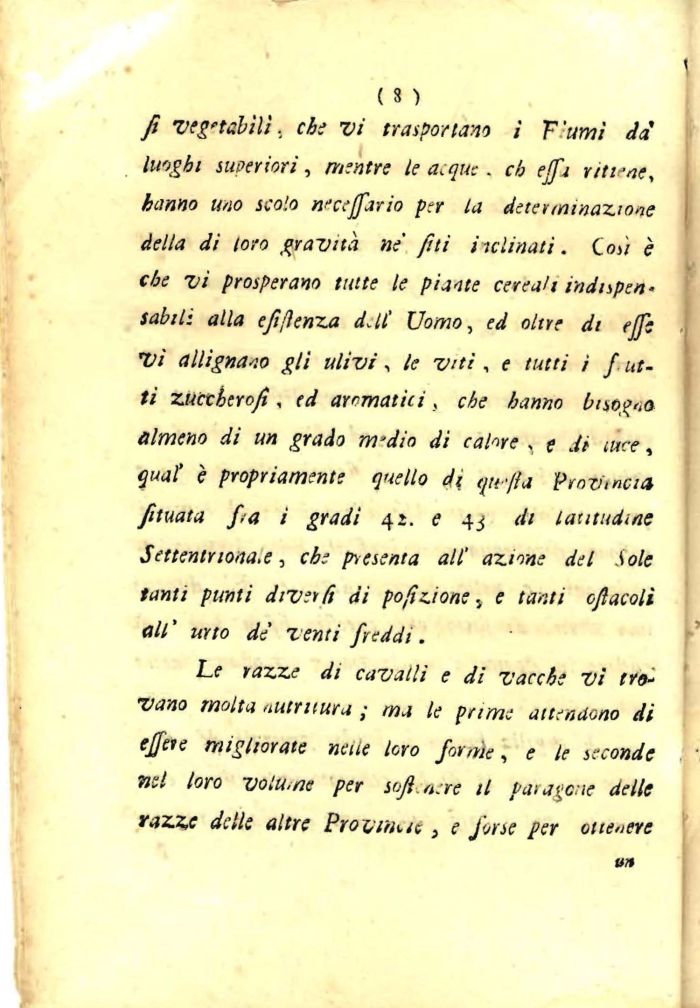 ( 8 )
ſi vegetabili, che vi trasportano i Fiumi da'
luoghi superiori, mentre le acque. ch eſſa ritiene,
hanno uno scolo neceſſario per la determinazione
della di loro gravità ne' ſiti inclinati. Così è
che vi prosperano tutte le piante cereali indispen-
sabili alla eſiſtenza dell' Uomo, ed oltre di eſſe
vi allignano gli ulivi, le viti, e tutti i frut-
ti zuccheroſi, ed aromatici, che hanno bisogno
almeno di un grado medio di calore, e di luce,
qual' è propriamente quello di queſta Provincia
ſituata fra i gradi 42. e 43 di latitudine
Settentrionale, che presenta all' azione del Sole
tanti punti diverſi di poſizione, e tanti oſtacoli
all' urto de' venti freddi.
Le razze di cavalli e di vacche vi tro-
vano molta nutritura; ma le prime attendono di
eſſere migliorate nelle loro forme, e le seconde
nel loro volume per soſtenere il paragone delle
razze delle altre Provincie, e forse per ottenere
un